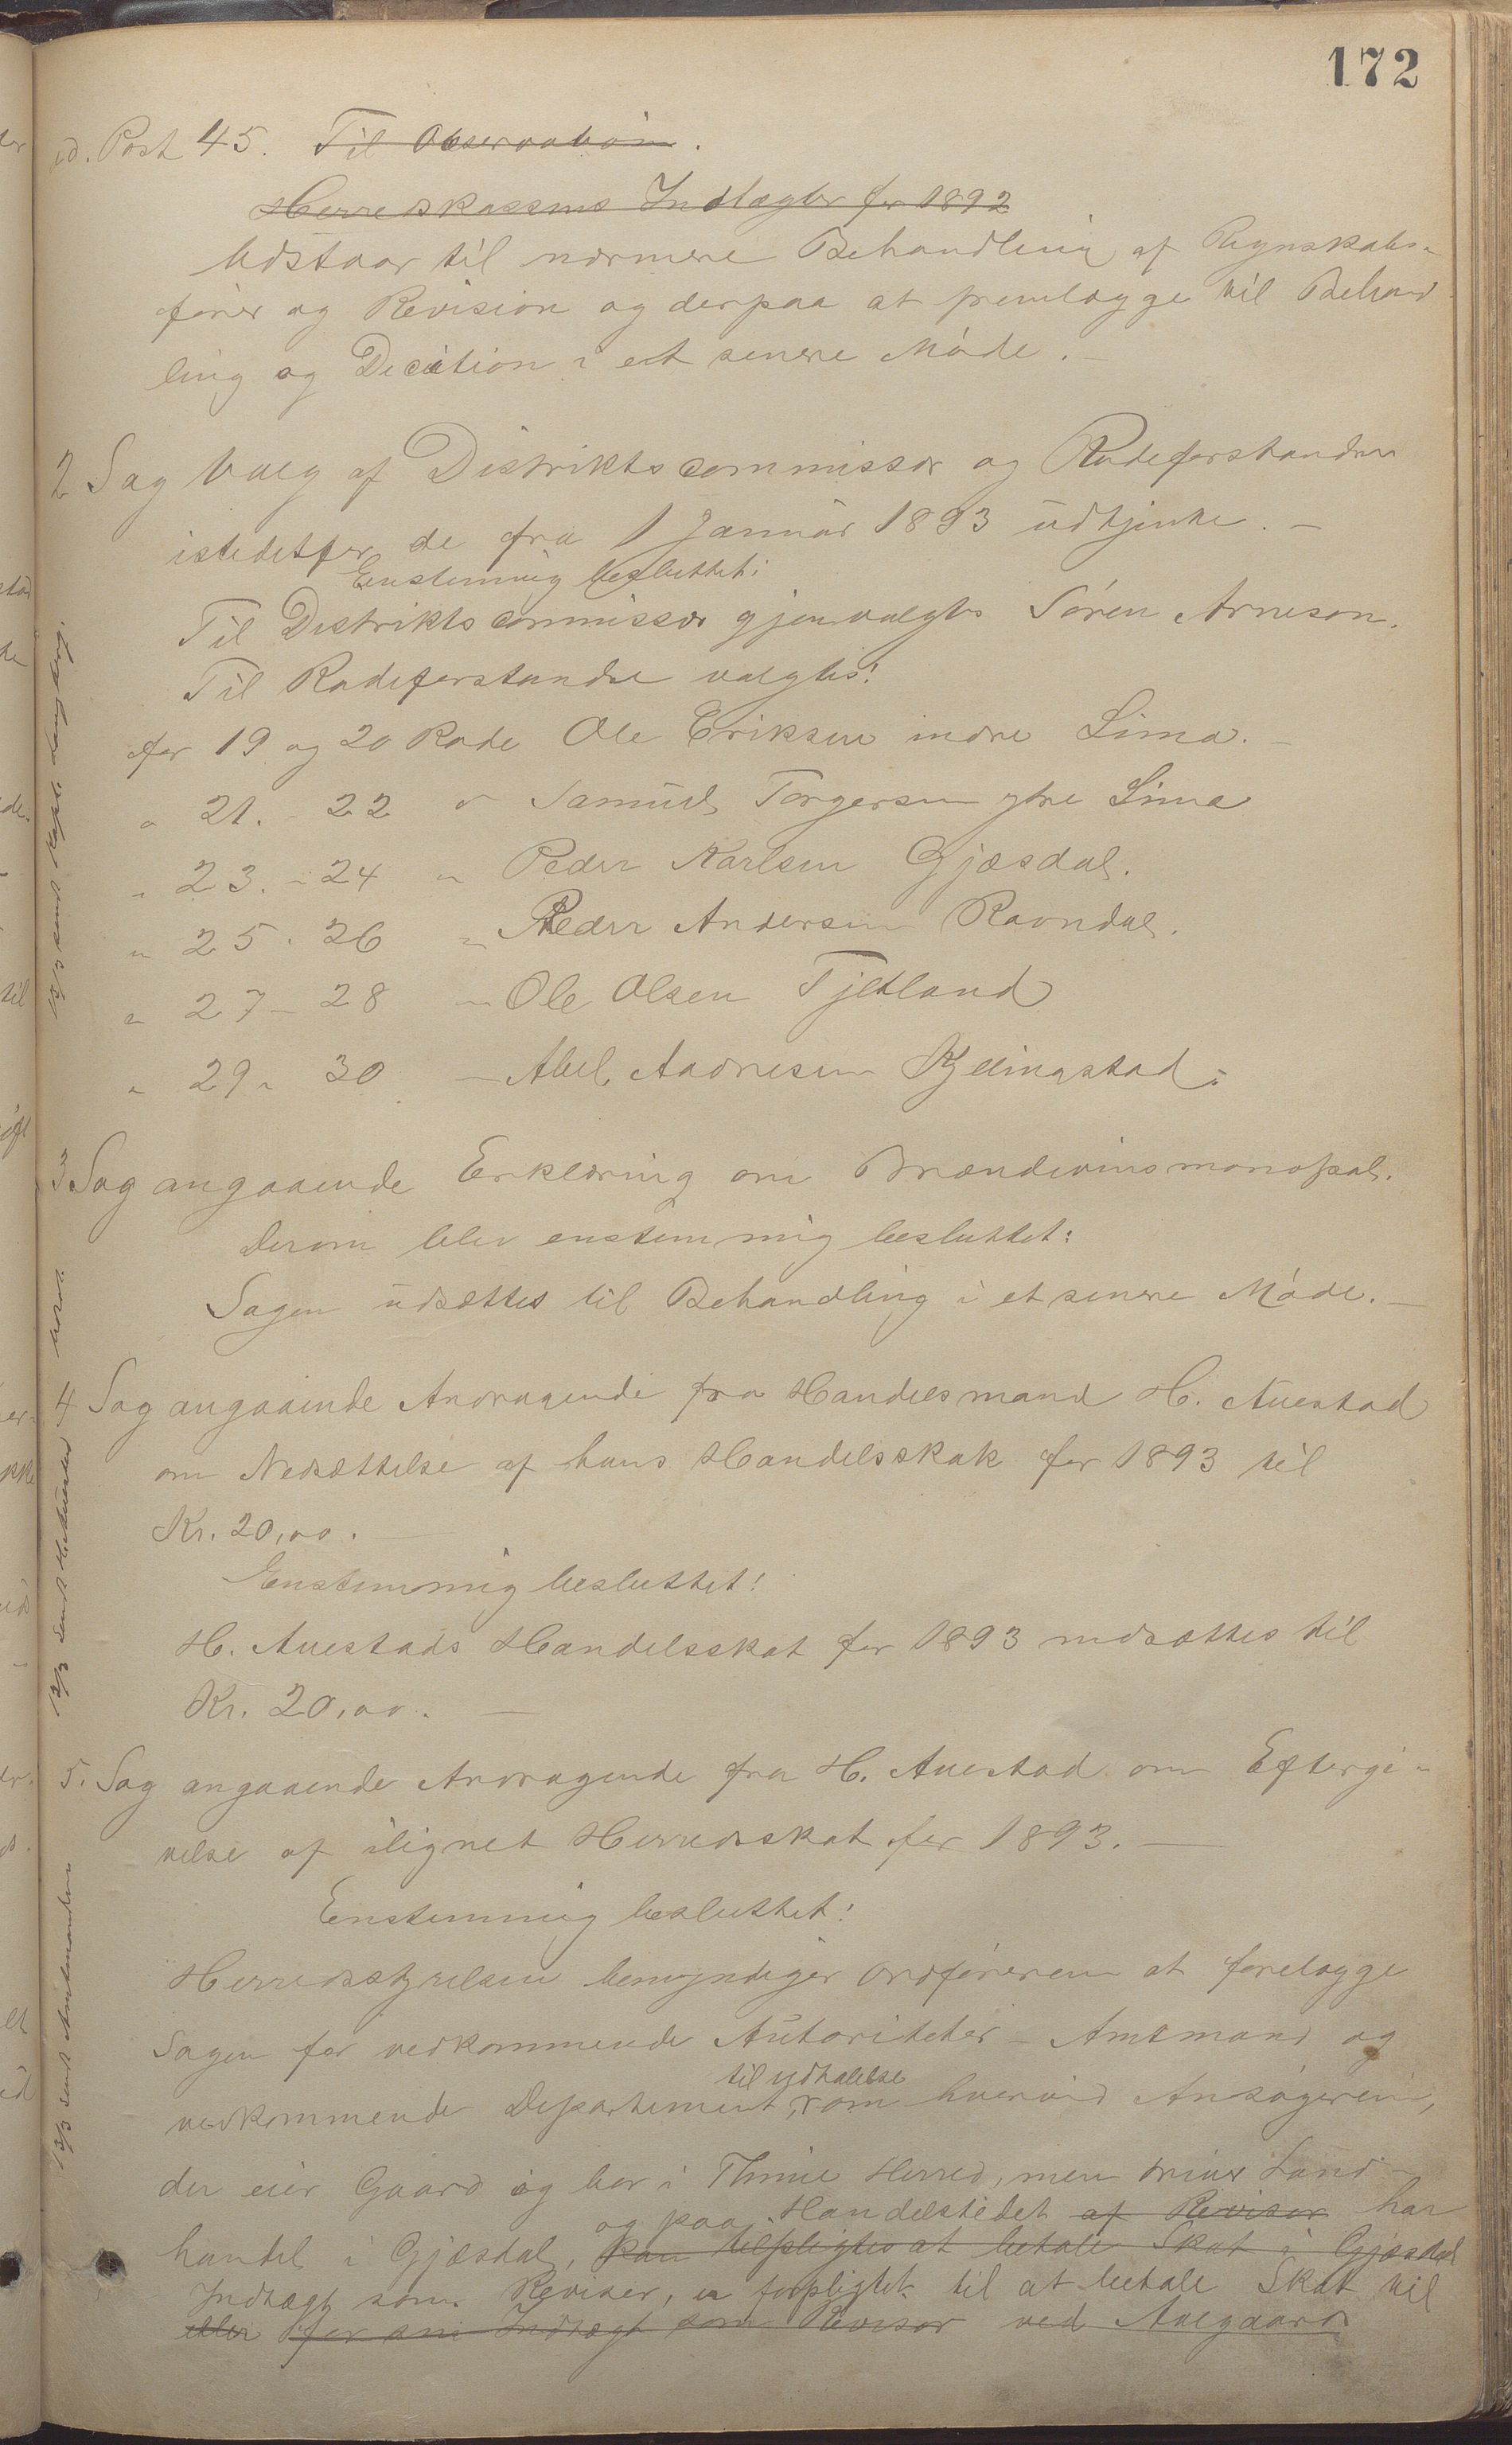 172
ad. Post 45. Til Observation.
Herredskassens Indtægter for 1892
Udstaar til nærmere Behandling af Regnskabs-
fører og Revision og derpaa at fremlægge til Behand
ling og Decition i et senere Møde. -
2 Sag Valg af Distriktscommissær og Rodeforstandere
istedetfor de fra 1 Januar 1893 udtjente. -
Enstemmig besluttet:
Til Distriktscommissær gjenvalgtes Søren Arneson.
Til Rodeforstandre valgtes:
for 19 og 20 Rode Ole Eriksen indre Lima. -
" 21. - 22 " Samuel Torgersen ytre Lima
" 23. - 24 " Peder Karlsen Gjæsdal.
" 25 - 26 " Peder Andersen Ravndal.
" 27 - 28 - Ole Olsen Tjetland
" 29 " 30 - Abel Aadnesen Kyllingstad.
3 Sag angaaende Erklæring om Brændevinsmonopol.
Derom blev enstemmig besluttet:
Sagen udsættes til Behandling i et senere Møde. -
4 Sag angaaende Andragende fra Handelsmand H. Auestad
om Nedsættelse af hans Handelsskat for 1893 til
Kr. 20,00. -
Enstemmig besluttet:
H. Auestads Handelsskat for 1893 nedsættes til
Kr. 20,00. -
5. Sag angaaende Andragende fra H. Auestad om Eftergi-
velse af ilignet Herredsskat for 1893. -
Enstemmig besluttet:
Herredsstyrelsen bemyndiger Ordføreren at forelægge
Sagen for vedkommende Autoriteter - Amtmand og
til Udtalelse
vedkommende Departement, om hvorvid Ansøgeren,
der eier Gaard og bor i Thime Herred, men driver Land-
og paa Handelstedet af Revisor har
handel i Gjæsdal, kan tilpligtes at betale Skat i Gjæsdal
Indtægt som Revisor, er forpligtet til at betale Skat til
eller for sin Indtægt som Revisor ved Aalgaard